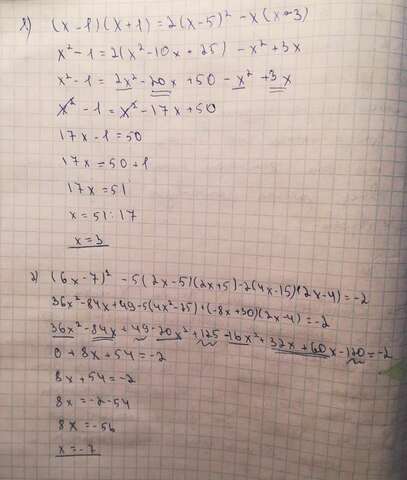 1) (x-1)(x+1)=2(x-5)²-x(x-3)
x²-1=2(x²-10x+25)-x²+3x
x²-1=2x²-20x+50-x²+3x
x²-1=x²-17x+50
17x-1=50
17x=50+1
17x=51
x=51:17
x=3
2) (6x-7)²-5(2x-5)(2x+5)-2(4x-15)(2x-4)=-2
36x²-84x+49-5(4x²-25)+(-8x+30)(2x-4)=-2
36x²-84x+49-20x²+125-16x²+32x+60x-120=-2
0+8x+54=-2
8x+54=-2
8x=-2-54
8x=-56
x=-7